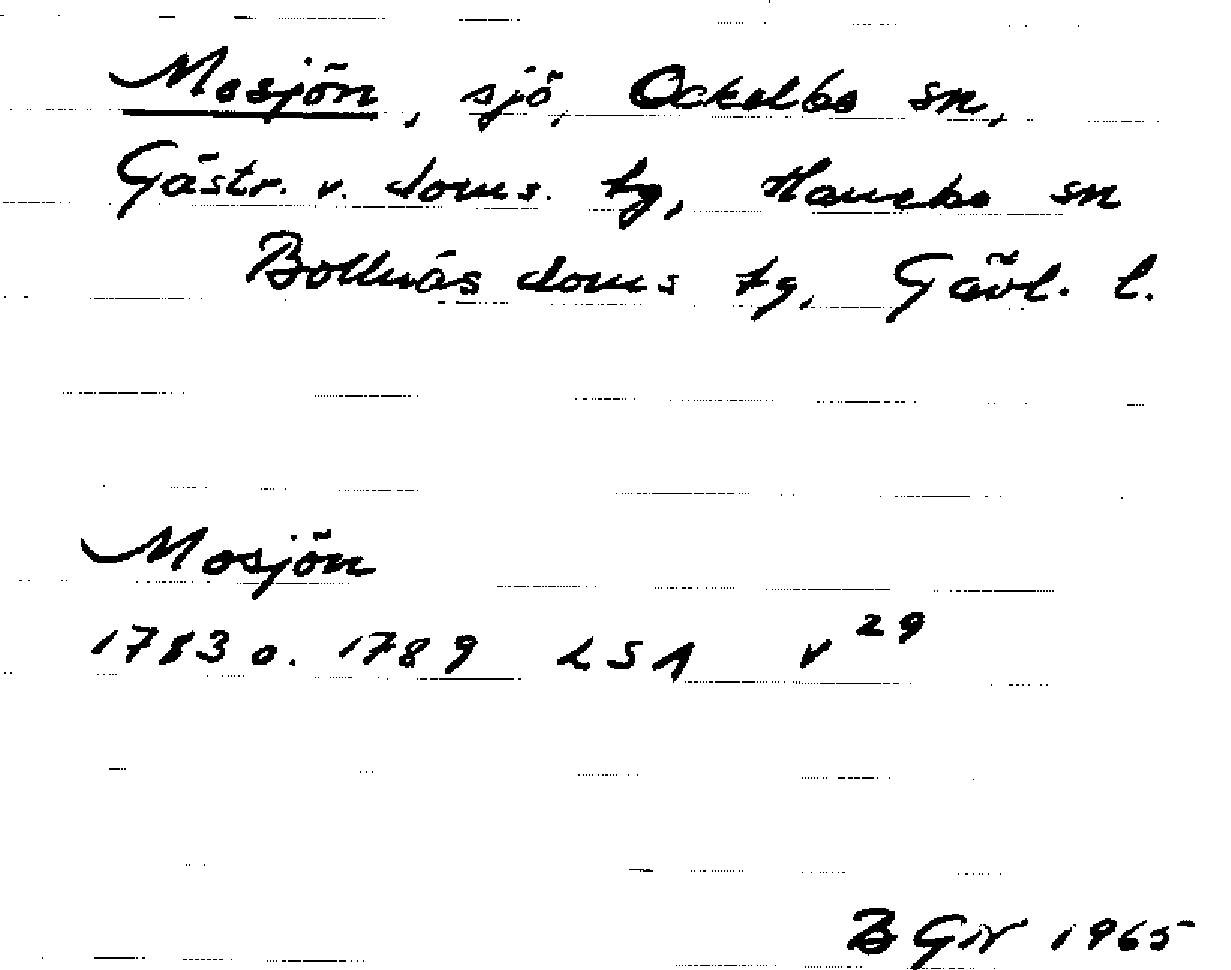 Mosjön, sjö, Ockelbo sn,
Gästr. v. doms. tg, Hanebo sn
Bollnäs doms tg, Gävl. l.
Mosjön
1783 o. 1789 LSA v 29
B GN 1965